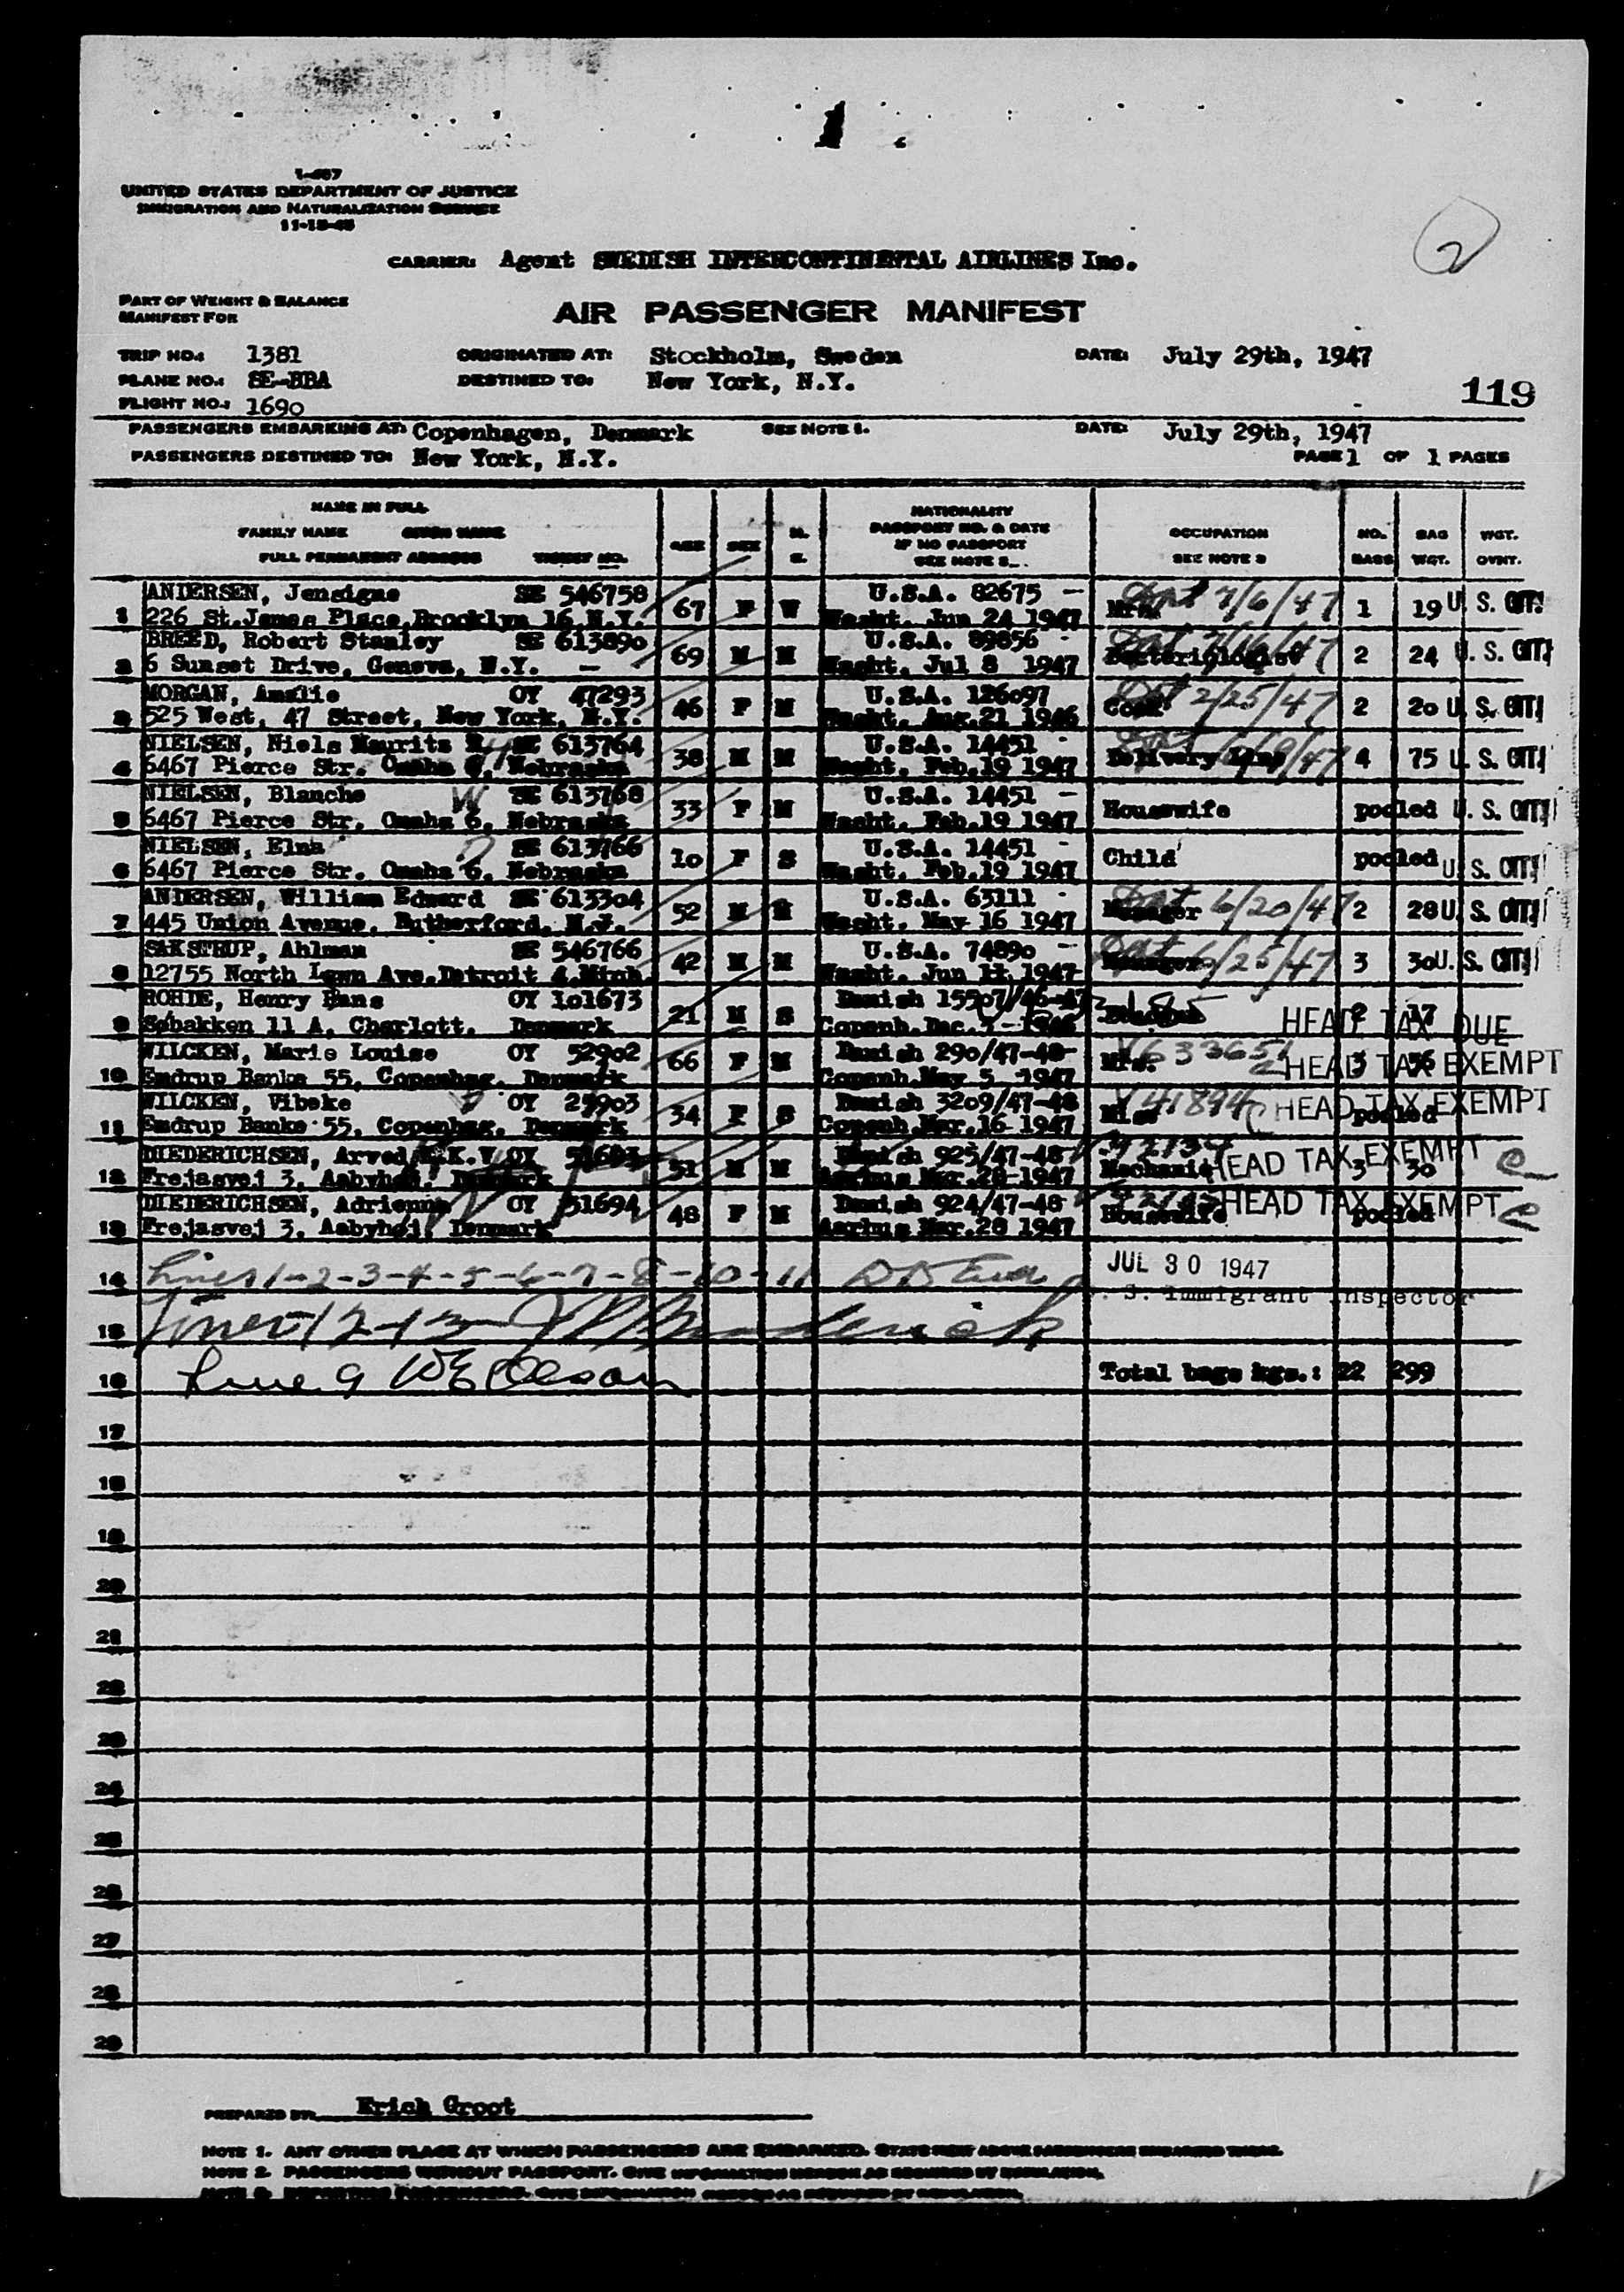 1
I-467
UNITED STATES DEPARTMENT OF JUSTICE
IMMIGRATION AND NATURALIZATION SERVICE
11-15-45
2
CARRIER: Agent SWEDISH INTERCONTINENTAL AIRLINES Inc.
PART OF WEIGHT & BALANCE
MANIFEST FOR
AIR PASSENGER MANIFEST
TRIP NO.: 1381 ORIGINATED AT: Stockholm, Sweden DATE: July 29th, 1947
PLANE NO.: SE-BBA DESTINED TO: New York, N.Y.
119
FLIGHT NO.: 1690
PASSENGERS EMBARKING AT: Copenhagen, Denmark SEE NOTE 1. DATE: July 29th, 1947
PASSENGERS DESTINED TO: New York, N.Y. PAGE 1 OF 1 PAGES
NAME IN FULL
FAMILY NAME GIVEN NAME
FULL PERMANENT ADDRESS TICKET NO. AGE SEX M. S.
NATIONALITY
PASSPORT NO. & DATE
IF NO PASSPORT
SEE NOTE 2.
OCCUPATION NO. BAG WGT.
SEE NOTE 3 BAGS WGT. OVNT.
ANDERSEN, Jensigne SE 546758 U.S.A. 82675 - 7/6/47
1 226 St.James Place,Brooklyn 16,N.Y. 67 F W Washt. Jun 24 1947 Mrs. 1 19 U.S. CIT.
BREED, Robert Stanley SE 613890 U.S.A. 89856 -
2 6 Sunset Drive, Geneva, N.Y. - 69 M M Washt. Jul 8 1947 Bacteriologist 2 24 U.S. CIT.
MORGAN, Amalie OY 47293 U.S.A. 126097 2/25/47
3 525 West, 47 Street, New York, N.Y. 46 F M Washt. Aug.21 1946 Cook 2 20 U.S. CIT.
NIELSEN, Niels Mauritz H SE 613764 U.S.A. 14451 -
4 6467 Pierce Str. Omaha 6, Nebraska 38 M M Washt. Feb.19 1947 Delivery 4 75 U.S. CIT.
NIELSEN, Blanche W SE 613768 U.S.A. 14451 -
5 6467 Pierce Str. Omaha 6, Nebraska 33 F M Washt. Feb.19 1947 Housewife pooled U.S. CIT.
NIELSEN, Elna SE 613766 U.S.A. 14451 -
6 6467 Pierce Str. Omaha 6, Nebraska 10 F S Washt. Feb.19 1947 Child pooled U.S. CIT.
ANDERSEN, William Edward SE 613304 U.S.A. 63111 - 6/20/47
7 445 Union Avenue, Rutherford, N.J. 52 M M Washt. May 16 1947 Manager 2 28 U.S. CIT.
SAKSTRUP, Ahlman SE 546766 U.S.A. 74890 - 6/25/47
8 12755 North Lawn Ave.Detroit 4.Mich. 42 M M Washt. Jun 11 1947 Manager 3 30 U.S. CIT.
ROHDE, Henry Hans OY 101673 Danish 15507/46-47
9 Søbakken 11 A, Charlott. Denmark 21 M S Copenh.Dec. 1946 2 17 HEAD TAX DUE
WILCKEN, Marie Louise OY 52902 Danish 290/47-48-
10 Emdrup Banke 55, Copenhag. Denmark 66 F M Copenh.May 5 -1947 Mrs. 3 56 HEAD TAX EXEMPT
WILCKEN, Vibeke OY 25903 Danish 3209/47-48
11 Emdrup Banke 55, Copenhag. Denmark 34 F S Copenh.Mar.16-1947 Miss pooled HEAD TAX EXEMPT
DIEDERICHSEN, Arved E.K.V OY Danish 925/47-48
12 Frejasvej 3, Aabyhøj, Denmark 51 M M Aarhus Mar.28-1947 Mechanic 3 30 HEAD TAX EXEMPT
DIEDERICHSEN, Adrienne OY 51694 Danish 924/47-48
13 Frejasvej 3, Aabyhøj, Denmark 48 F M Aarhus Mar.28 1947 Housewife pooled HEAD TAX EXEMPT
14 Lines 1-2-3-4-5-6-7-8-10-11 JUL 30 1947
U. S. Immigrant Inspector
15 Lines 12-13
16 Line 9 WE Olson Total bags kgs.: 22 299
17
18
19
20
21
22
23
24
25
26
27
28
29
PREPARED BY: Erich Groot
NOTE 1. ANY OTHER PLACE AT WHICH PASSENGERS ARE EMBARKED. STATE NEXT ABOVE PASSENGERS EMBARKED THERE.
NOTE 2. PASSENGERS WITHOUT PASSPORT. GIVE INFORMATION HEREON AS REQUIRED BY REGULATION.
NOTE 3. DEPARTING PASSENGERS. GIVE INFORMATION HEREON AS REQUIRED BY REGULATION.